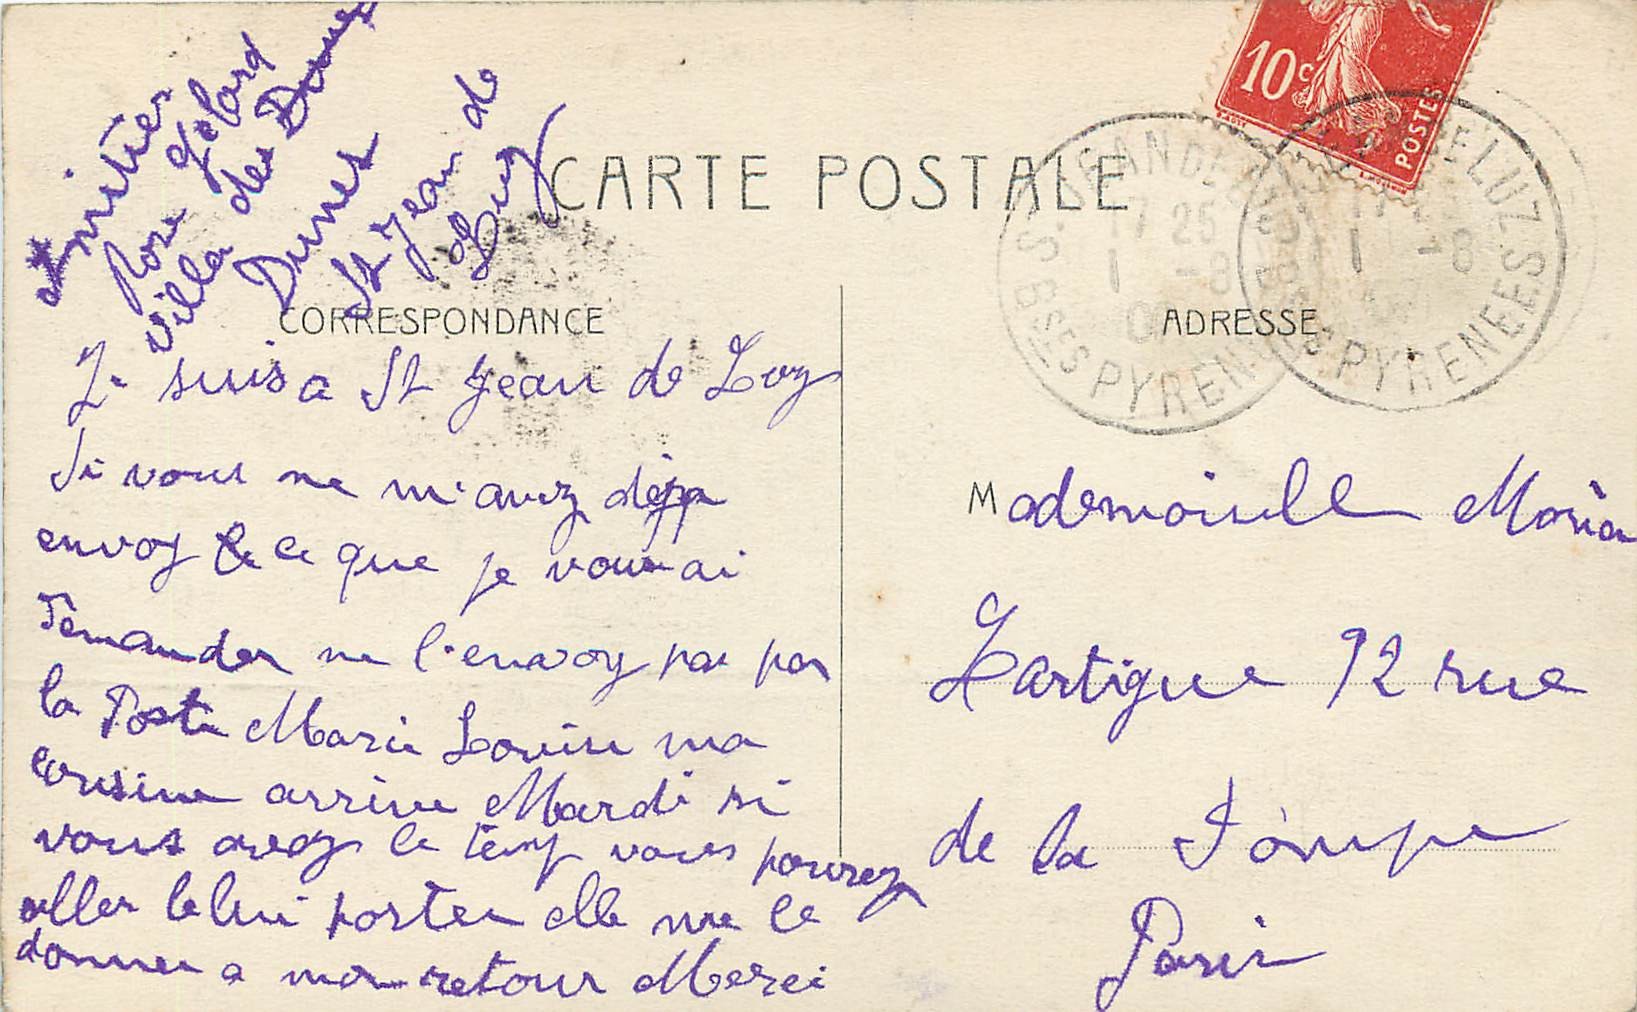 Amitiés
Rose Gélard
Villa des Dunes
Dunes
St Jean de
Luz
CARTE POSTALE
10c
POSTES
ST JEAN DE LUZ
17 25
1 -8
07
BSES PYRENEES
ST JEAN DE LUZ
1 -8
BSES PYRENEES
CORRESPONDANCE
ADRESSE
Je suis a St Jean de Luz
Si vous ne m'avez déja
envoy ce que je vous ai
demander ne l'envoy pas par
la Poste Marie Louise ma
cousine arrive Mardi si
vous avez le temp vous pourez
aller le lui porter elle me le
donner a mon retour Merci
Mademoiselle Maria
Lartigue 92 rue
de la Pompe
Paris